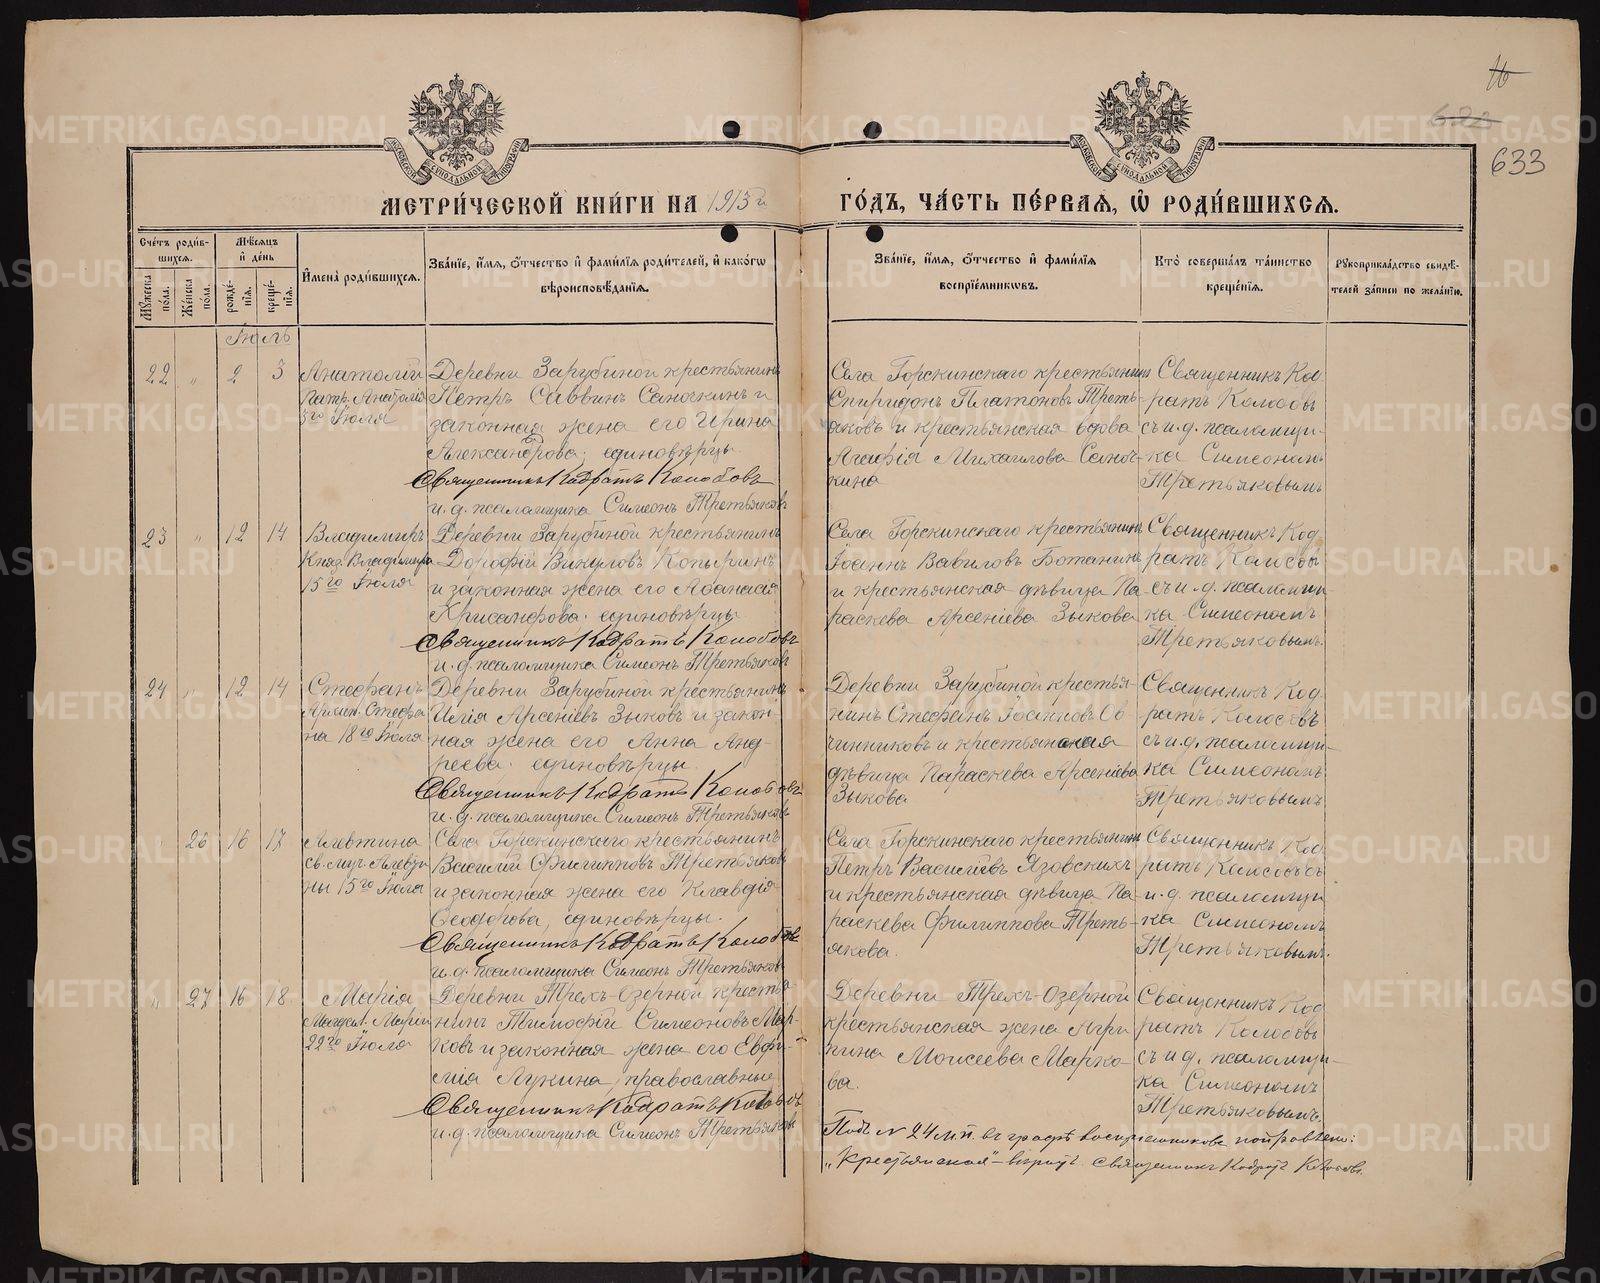 633
МЕТРИ́ЧЕСКОЙ КНИ́ГИ НА 1913 г.
ГО́ДЪ, ЧА́СТЬ ПЕ́РВАЯ, Ѡ РОДИ́ВШИХСЯ.
Сче́тъ роди́в-
шихся.
Му́жеска пола.
Же́нска пола.
Мѣ́сяцъ
и҆ де́нь
рожде́-
нїя.
креще́-
нїя.
И҆мена̀ роди́вшихся.
Зва́нїе, и҆́мя, ѻ҆́тчество и҆ фами́лїя роди́телей, и҆ како́гѡ
вѣроисповѣ́данїя.
Зва́нїе, и҆́мя, ѻ҆́тчество и҆ фами́лїя
воспрїе́мникѡвъ.
Кто̀ соверша́лъ та́инство
креще́нїя.
Рꙋкоприкла́дство свидѣ́-
телей за́писи по жела́нїю.
Іюль
22 " 2 3
Анатолій
Патр. Анатолія
3го Іюля
Деревни Зарубиной крестьянинъ
Петръ Саввинъ Саночкинъ и
законная жена его Ирина
Александрова, единовѣрцы.
Священникъ Кодратъ Колобовъ
и. д. псаломщика Симеонъ Третьяковъ
Села Горскинскаго крестьянинъ
Спиридонъ Платоновъ Треть-
яковъ и крестьянская вдова
Агафія Михаилова Саноч-
кина
Священникъ Код
ратъ Колобовъ
съ и. д. псаломщи-
ка Симеономъ
Третьяковымъ
23 " 12 14
Владимиръ
Княз. Владимира
15го Іюля
Деревни Зарубиной крестьянинъ
Дорофій Викуловъ Копыринъ
и законная жена его Афанасія
Крисанфова. единовѣрцы.
Священникъ Кодратъ Колобовъ
и. д. псаломщика Симеонъ Третьяковъ
Села Горскинскаго крестьянинъ
Іоаннъ Вавиловъ Ботанинъ
и крестьянская дѣвица Па-
раскева Арсеніева Зыкова
Священникъ Код
ратъ Колобовъ
съ и. д. псаломщи-
ка Симеономъ
Третьяковымъ.
24 " 12 14
Стефанъ
Стефа
на 18го Іюля
Деревни Зарубиной крестьянинъ
Илія Арсеніевъ Зыковъ и закон-
ная жена его Анна Анд-
реева. единовѣрцы.
Священникъ Кодратъ Колобовъ
и. д. псаломщика Симеонъ Третьяковъ
Деревни Зарубиной крестья-
нинъ Стефанъ Іоанновъ Ов
чинниковъ и крестьянская
дѣвица Параскева Арсеніева
Зыкова
Священникъ Код
ратъ Колобовъ
съ и. д. псаломщи-
ка Симеономъ
Третьяковымъ
26 16 17
Алевтина
св. муч. Алевти
ны 15го Іюля
Села Горскинскаго крестьянинъ
Василій Филипповъ Третьяковъ
и законная жена его Клавдія
Ѳеодорова, единовѣрцы.
Священникъ Кодратъ Колобовъ
и. д. псаломщика Симеонъ Третьяковъ
Села Горскинскаго крестьянинъ
Петръ Василіевъ Язовскихъ
и крестьянская дѣвица Па
раскева Филиппова Треть-
якова.
Священникъ Код
ратъ Колобовъ съ
и. д. псаломщи
ка Симеономъ
Третьяковымъ.
" 27 16 18
Марія
Магдал. Маріи
22го Іюля
Деревни Трехъ-Озерной крестья
нинъ Тимофій Симеоновъ Мар-
ковъ и законная жена его Евфи-
мія Лукина, православные
Священникъ Кодратъ Колобовъ
и. д. псаломщика Симеонъ Третьяковъ
Деревни Трехъ-Озерной
крестьянская жена Агри
пина Моисеева Марко-
ва.
Священникъ Код
ратъ Колобовъ
съ и д. псаломщи-
ка Симеономъ
Третьяковымъ.
Подъ № 24 м. п. въ графѣ воспріемниковъ поправлено:
„крестьянская" - вѣрно. Священникъ Кодратъ Колобовъ.
METRIKI.GASO-URAL.RU